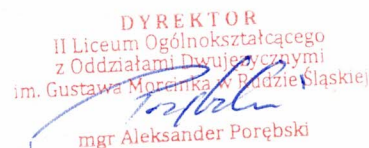 DYREKTOR
II Liceum Ogólnokształcącego
z Oddziałami Dwujęzycznymi
im. Gustawa Morcinka w Rudzie Śląskiej
mgr Aleksander Porębski